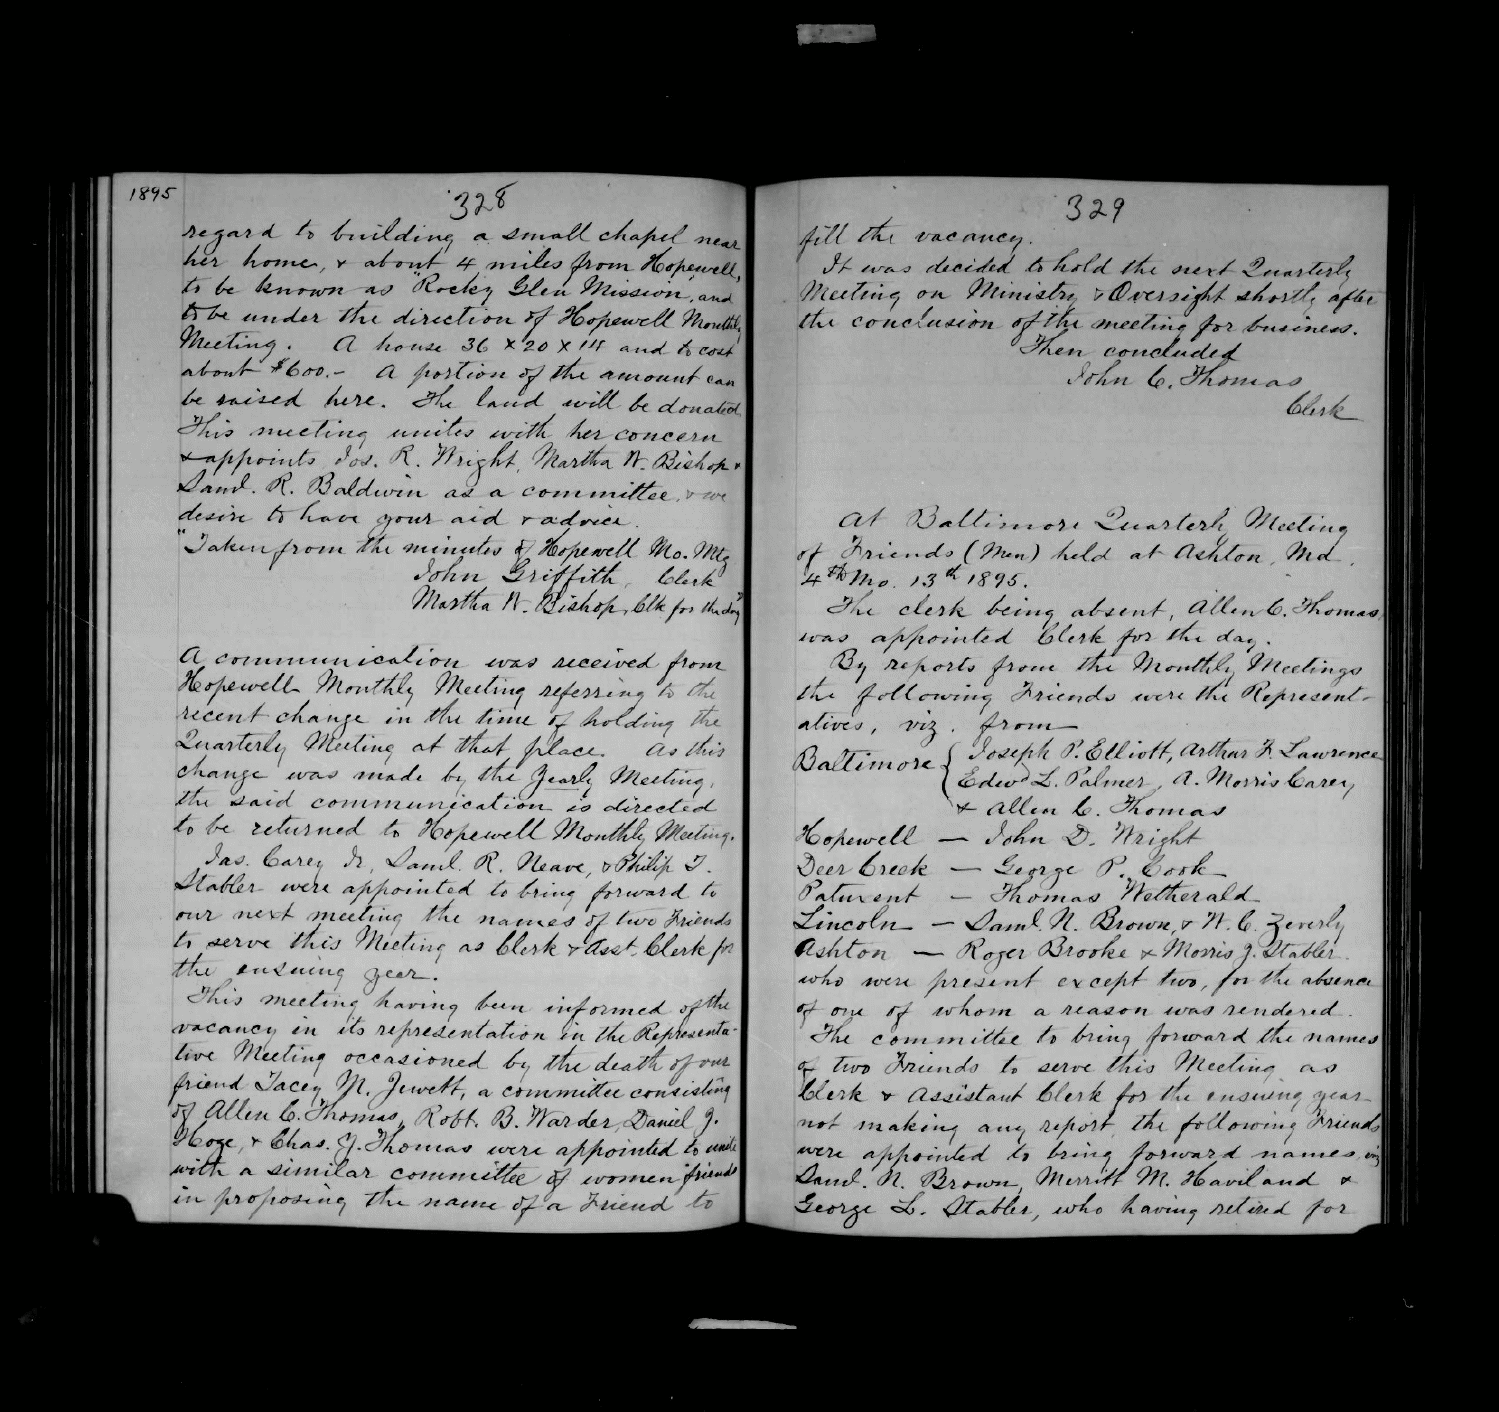 1895
328
regard to building a small chapel near
her home, & about 4 miles from Hopewell,
to be known as "Rocky Glen Mission", and
to be under the direction of Hopewell Monthly
Meeting. A house 36 x 20 x 14 and to cost
about $600.- A portion of the amount can
be raised here. The land will be donated
This meeting unites with her concern
& appoints Jos. R. Wright, Martha W. Bishop &
Saml. R. Baldwin as a committee, & we
desire to have your aid & advice.
"Taken from the minutes of Hopewell Mo. Mtg
John Griffith, Clerk
Martha W. Bishop, Clk for the day"
A communication was received from
Hopewell Monthly Meeting referring to the
recent change in the time of holding the
Quarterly Meeting at that place. As this
change was made by the Yearly Meeting,
the said communication is directed
to be returned to Hopewell Monthly Meeting.
Jas. Carey Jr., Saml. R. Neave, & Philip T.
Stabler were appointed to bring forward to
our next meeting the names of two Friends
to serve this Meeting as Clerk & Asst. Clerk for
the ensuing year.
This meeting having been informed of the
vacancy in its representation in the Representa-
tive Meeting occasioned by the death of our
friend Tacey M. Jewett, a committee consisting
of Allen C. Thomas, Robt. B. Warder, Daniel J.
Hoge, & Chas. Y. Thomas were appointed to unite
with a similar committee of women friends
in proposing the name of a Friend to
329
fill the vacancy.
It was decided to hold the next Quarterly
Meeting on Ministry & Oversight shortly after
the conclusion of the meeting for business.
Then concluded
John C. Thomas
Clerk
At Baltimore Quarterly Meeting
of Friends (Men) held at Ashton, Md.
4th Mo. 13th 1895.
The clerk being absent, Allen C. Thomas,
was appointed Clerk for the day.
By reports from the Monthly Meetings
the following Friends were the Represent-
atives, viz. from
Baltimore { Joseph P. Elliott, Arthur F. Lawrence
Edwd L. Palmer, A. Morris Carey,
& Allen C. Thomas
Hopewell — John D. Wright
Deer Creek — George P. Cook
Patuxent — Thomas Wetherald
Lincoln — Saml. N. Brown, & W. C. Zeverly
Ashton — Roger Brooke & Morris J. Stabler
who were present except two, for the absence
of one of whom a reason was rendered.
The committee to bring forward the names
of two Friends to serve this Meeting as
Clerk & Assistant Clerk for the ensuing year
not making any report, the following Friends
were appointed to bring forward names, viz
Saml. N. Brown, Merritt M. Haviland &
George L. Stabler, who having retired for